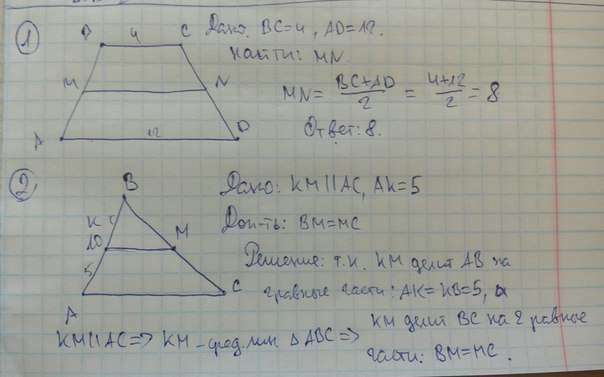 1
B 4 C
M N
A 12 D
Дано: BC=4, AD=12.
Найти: MN.
MN = BC+AD / 2 = 4+12 / 2 = 8
Ответ: 8.
2
B
K
10 M
5
A C
Дано: KM||AC, AK=5
Док-ть: BM=MC
Решение: т.к. KM делит AB на
2 равные части: AK=KB=5, а
KM||AC => KM - сред. лин. △ABC => KM делит BC на 2 равные
части: BM=MC.